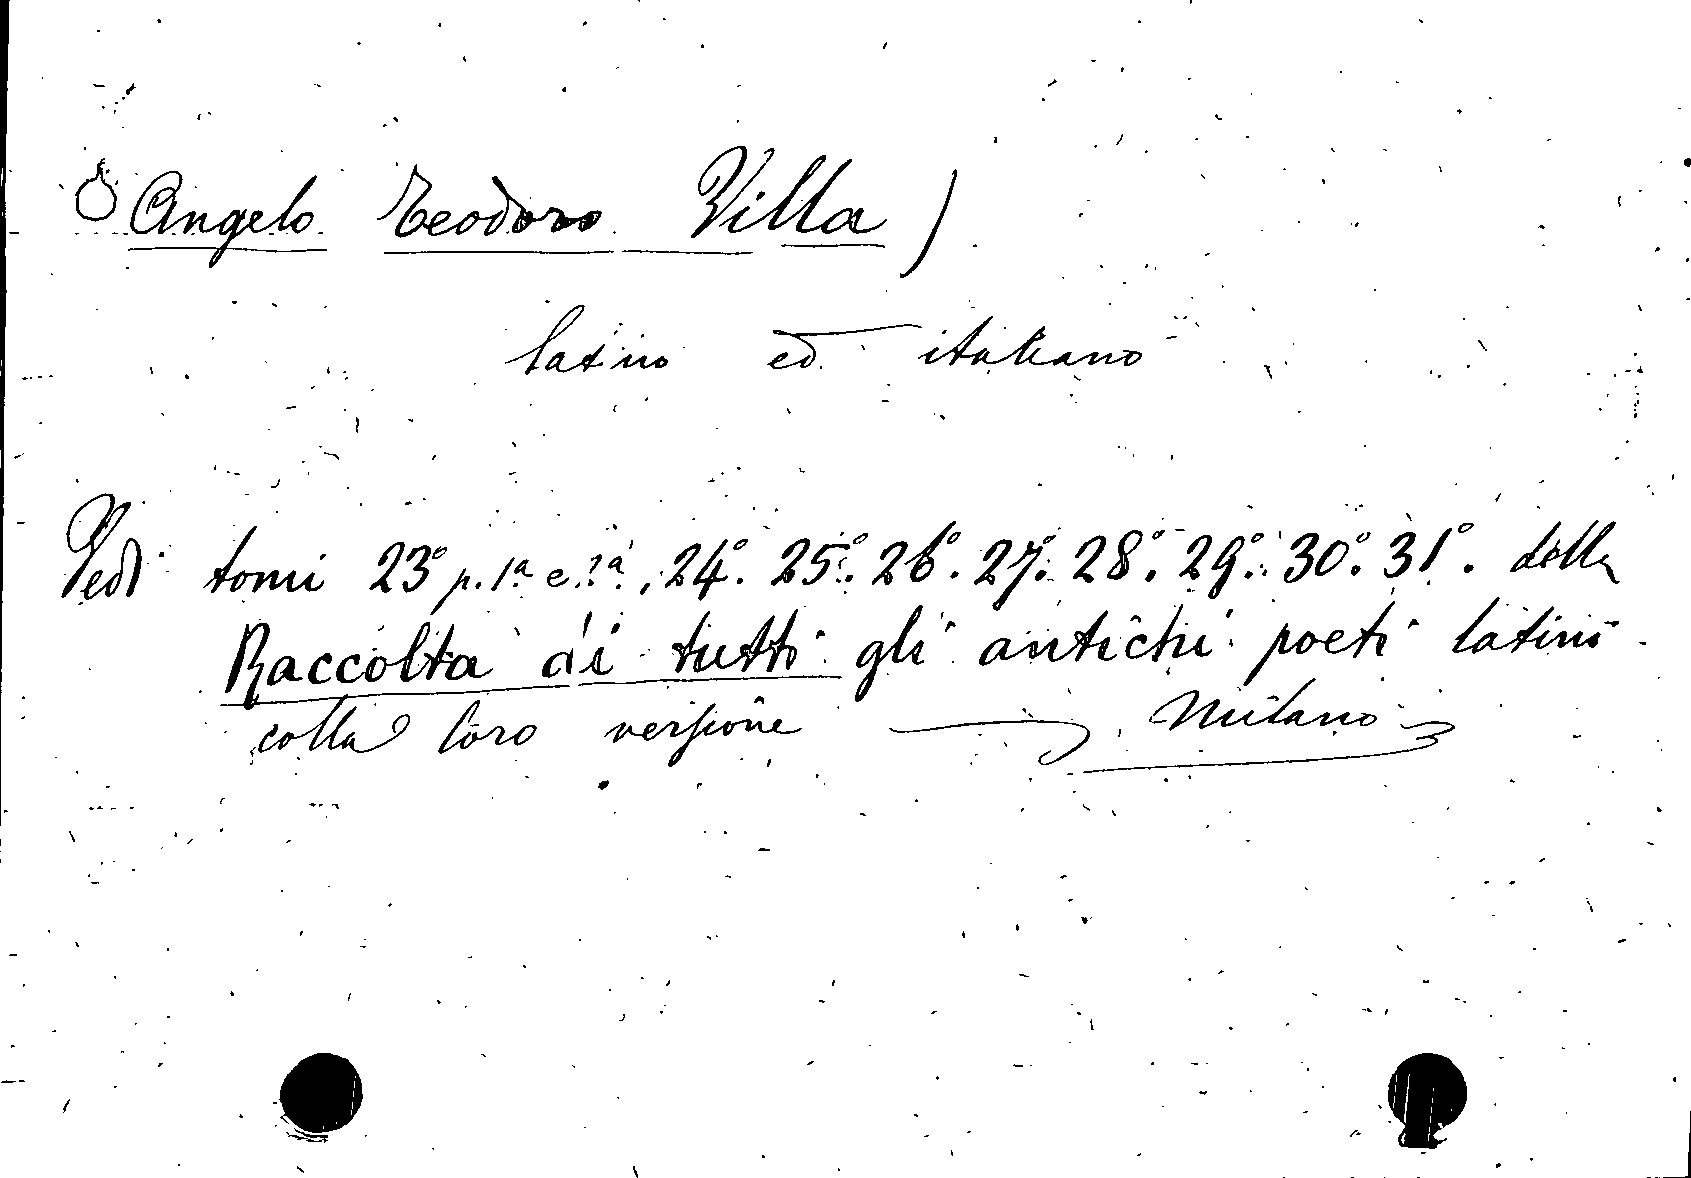 Angelo Teodoro Villa)
latino ed italiano
Vedi tomi 23° p. 1ª e 2ª, 24°. 25°. 26°. 27°. 28°. 29°. 30°. 31°. della
Raccolta di tutti gli antichi poeti latini
colla loro versione — , Milano